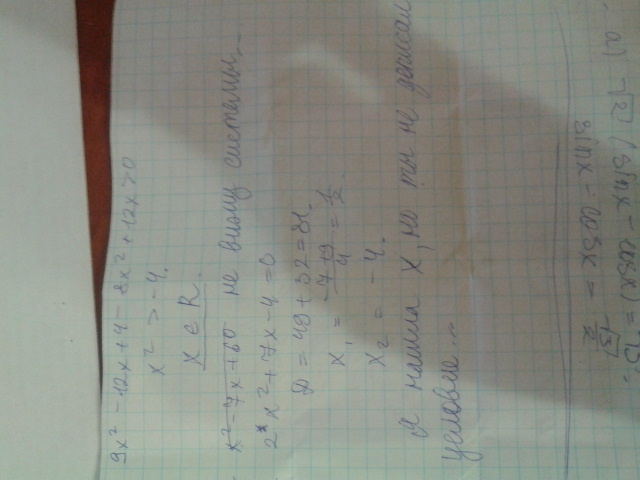 9x² - 12x + 4 - 8x² + 12x > 0
x² > -4.
x ∈ R.
x² - 7x + 60 не вижу системы...
2*x² + 7x - 4 = 0
D = 49 + 32 = 81.
x₁ = (-7+9)/4 = 1/2.
x₂ = -4.
Я нашла x, но ты не дописал
условие...
√2 (sinx - cosx) = √3
sinx - cosx = √3/2